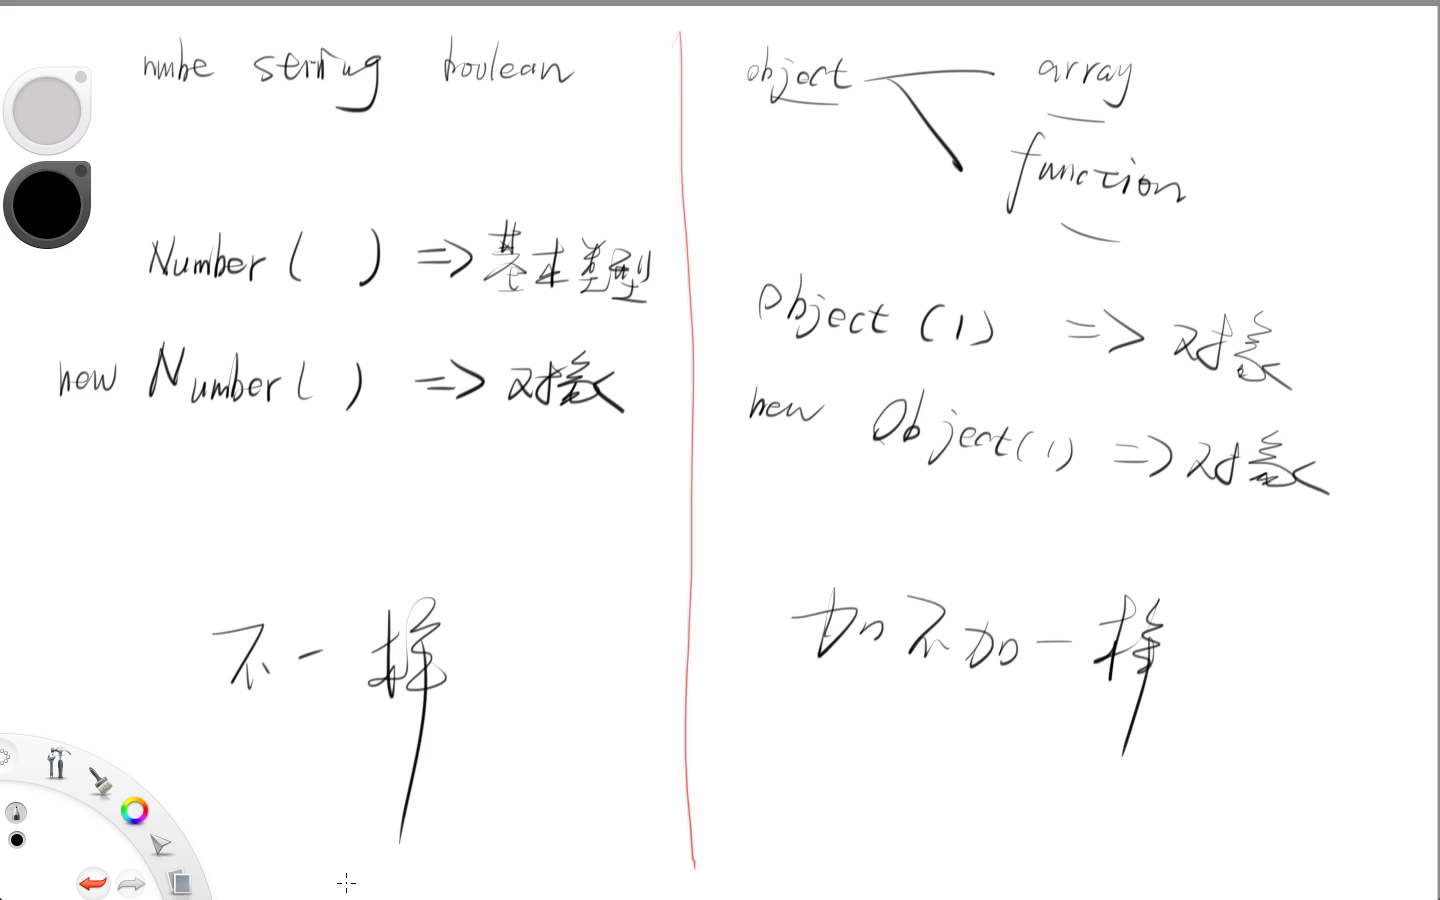 numbe string boolean
Number( ) => 基本类型
new Number( ) => 对象
不一样
object array
function
Object (1) => 对象
new Object(1) => 对象
加不加一样